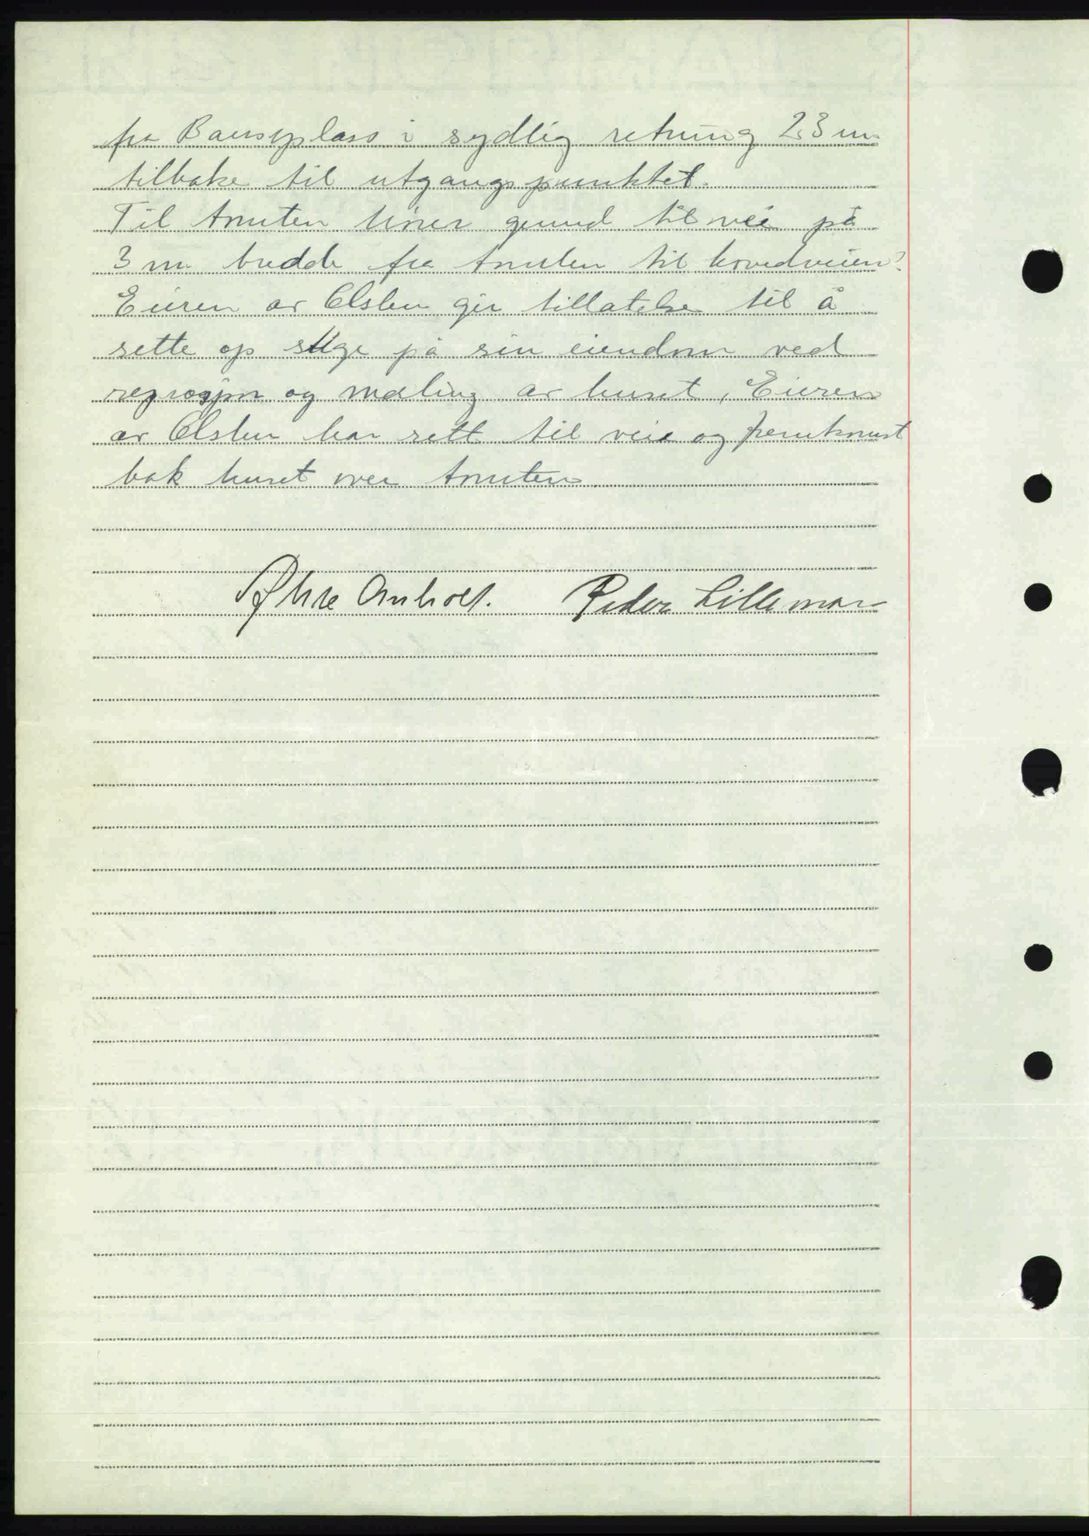 fra Bauseplass i sydlig retning 23 m
tilbake til utgangspunktet.
Til tomten hører grund til vei på
3 m bredde fra tomten til hovedveien.
Eieren av Elsten gir tillatelse til å
sette op stige på sin eiendom ved
reprasjon og maling av huset, Eieren
av Elsten har rett til veie og fremkomst
bak huset over tomten
Anholt. Peder Lillemoen